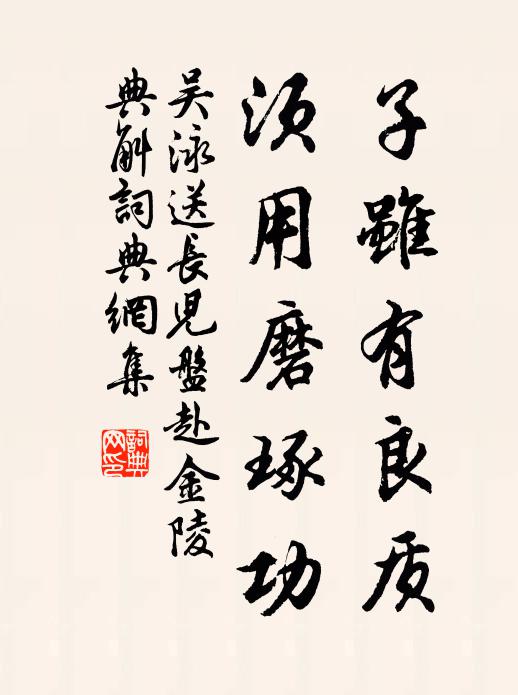 子雖有良质
须用磨琢功
吴泳送長児盤赴金陵
典解詞典網集
詞典网印